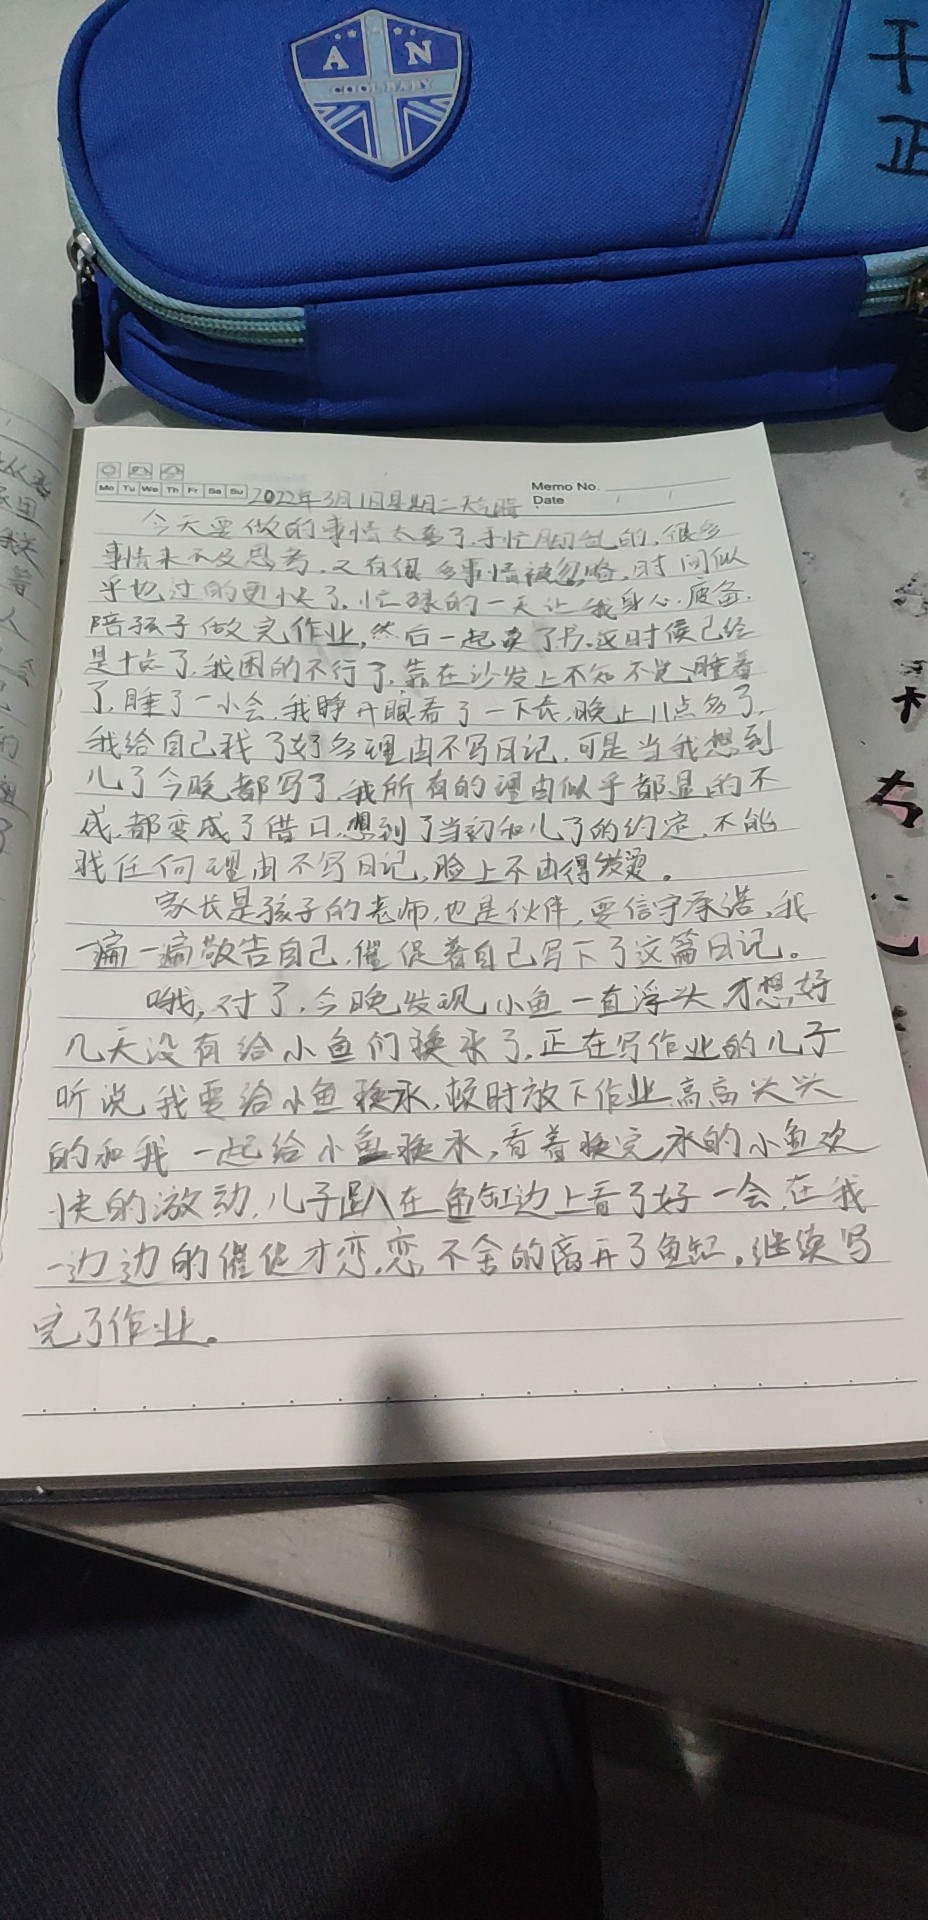 A N
COOLBABY
Mo Tu We Th Fr Sa Su
Memo No.
Date
2022年3月1日星期二天气晴
今天要做的事情太多了,手忙脚乱的,很多
事情来不及思考,又有很多事情被忽略,时间似
乎也过的更快了,忙碌的一天让我身心疲惫,
陪孩子做完作业,然后一起读了书,这时候已经
是十点了,我困的不行了,靠在沙发上不知不觉睡着
了,睡了一小会,我睁开眼看了一下表,晚上11点多了,
我给自己找了好多理由不写日记,可是当我想到
儿子今晚都写了,我所有的理由似乎都显的不
成,都变成了借口,想到了当初和儿子的约定,不能
找任何理由不写日记,脸上不由得发烫。
家长是孩子的老师,也是伙伴,要信守承诺,我
一遍一遍敬告自己,催促着自己写下了这篇日记。
哦,对了,今晚发现小鱼一直浮头,才想好
几天没有给小鱼们换水了,正在写作业的儿子
听说我要给小鱼换水,顿时放下作业,高高兴兴
的和我一起给小鱼换水,看着换完水的小鱼欢
快的游动,儿子趴在鱼缸边上看了好一会,在我
一边边的催促才恋恋不舍的离开了鱼缸。继续写
完了作业。